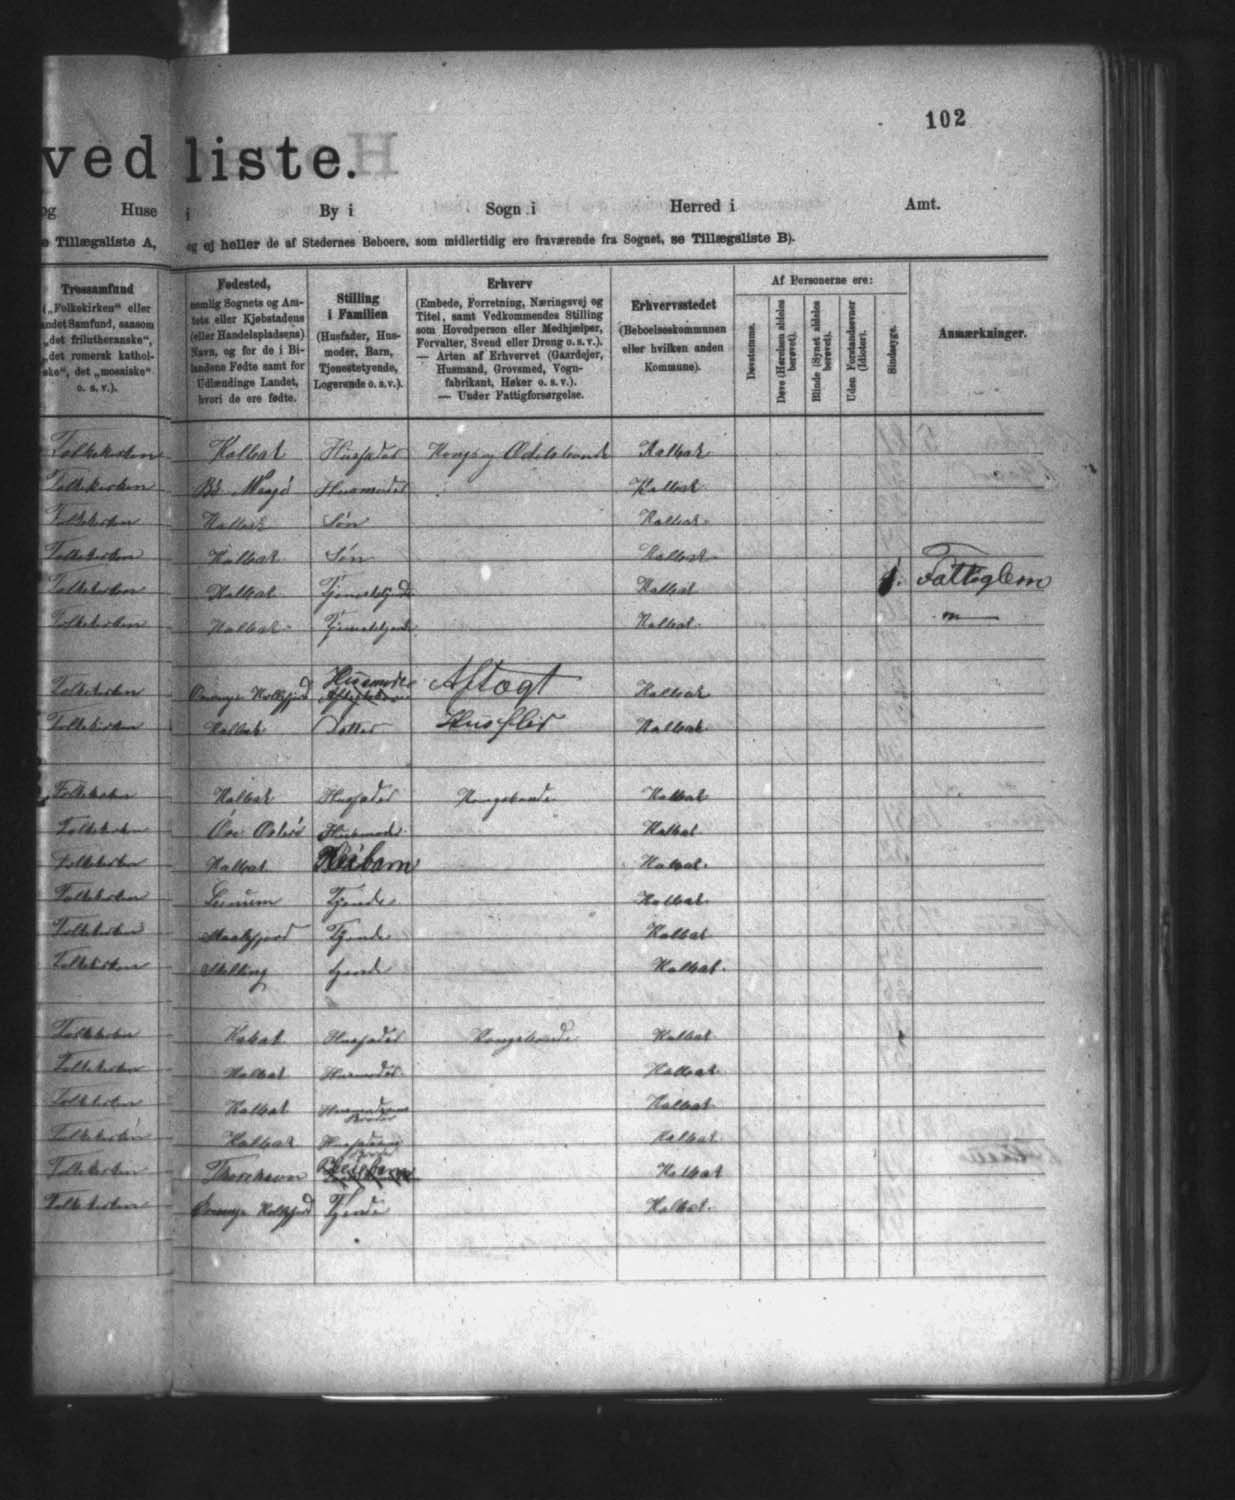 102
ved liste.
og Huse i By i Sogn i Herred i Amt.
e Tillægsliste A, og ej heller de af Stedernes Beboere, som midlertidig ere fraværende fra Sognet, se Tillægsliste B).
Trossamfund
(„Folkekirken“ eller
andet Samfund, saasom
„det frilutheranske“,
„det romersk kathol-
ske“, det „mosaiske“
o. s. v.).
Fødested,
nemlig Sognets og Am-
tets eller Kjøbstadens
(eller Handelspladsens)
Navn, og for de i Bi-
landene Fødte samt for
Udlændinge Landet,
hvori de ere fødte.
Stilling
i Familien
(Husfader, Hus-
moder, Barn,
Tjenestetyende,
Logerende o. s. v.).
Erhverv
(Embede, Forretning, Næringsvej og
Titel, samt Vedkommendes Stilling
som Hovedperson eller Medhjælper,
Forvalter, Svend eller Dreng o. s. v.).
— Arten af Erhvervet (Gaardejer,
Husmand, Grovsmed, Vogn-
fabrikant, Høker o. s. v.).
— Under Fattigforsørgelse.
Erhvervsstedet
(Beboelseskommunen
eller hvilken anden
Kommune).
Af Personerne ere:
Døvstumme.
Døve (Hørelsen aldeles
berøvet).
Blinde (Synet aldeles
berøvet).
Uden Forstandsevner
(Idioter).
Sindssyge.
Anmærkninger.
Folkekirken Kalbak Husfader Kongs og Odelsbonde Kalbak
Folkekirken Husmoder Kalbak
Folkekirken Kalbak Søn Kalbak
Folkekirken Kalbak Søn Kalbak
Folkekirken Kalbak Tjenestetyende Kalbak 1. Fattiglem
Folkekirken Kalbak Tjenestetyende Kalbak
Folkekirken Husmoder Aftægt Kalbak
Folkekirken Kalbak Datter Husflid Kalbak
Folkekirken Kalbak Husfader Kongsbonde Kalbak
Folkekirken Husmoder Kalbak
Folkekirken Kalbak Pleiebarn Kalbak
Folkekirken Tjende Kalbak
Folkekirken Tjende Kalbak
Folkekirken Tjende Kalbak
Folkekirken Kalbak Husfader Kongsbonde Kalbak
Folkekirken Kalbak Husmoder Kalbak
Folkekirken Kalbak Kalbak
Folkekirken Kalbak Kalbak
Folkekirken Thorshavn Pleiebarn Kalbak
Folkekirken Tjende Kalbak